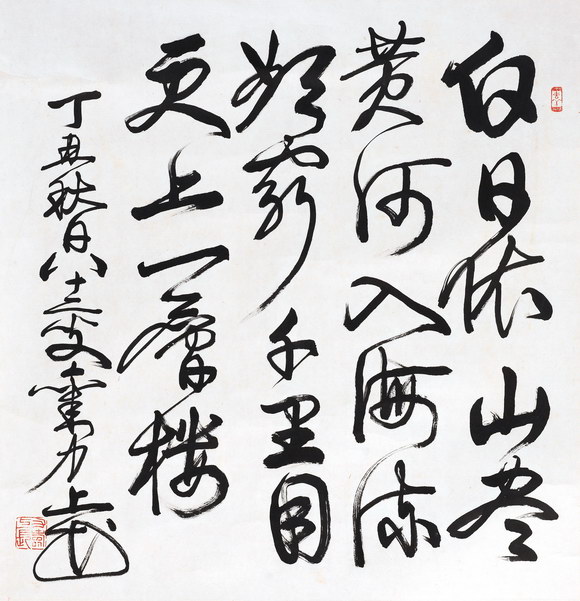 白日依山尽
黄河入海流
欲窮千里目
更上一層楼
丁丑秋日八十三叟